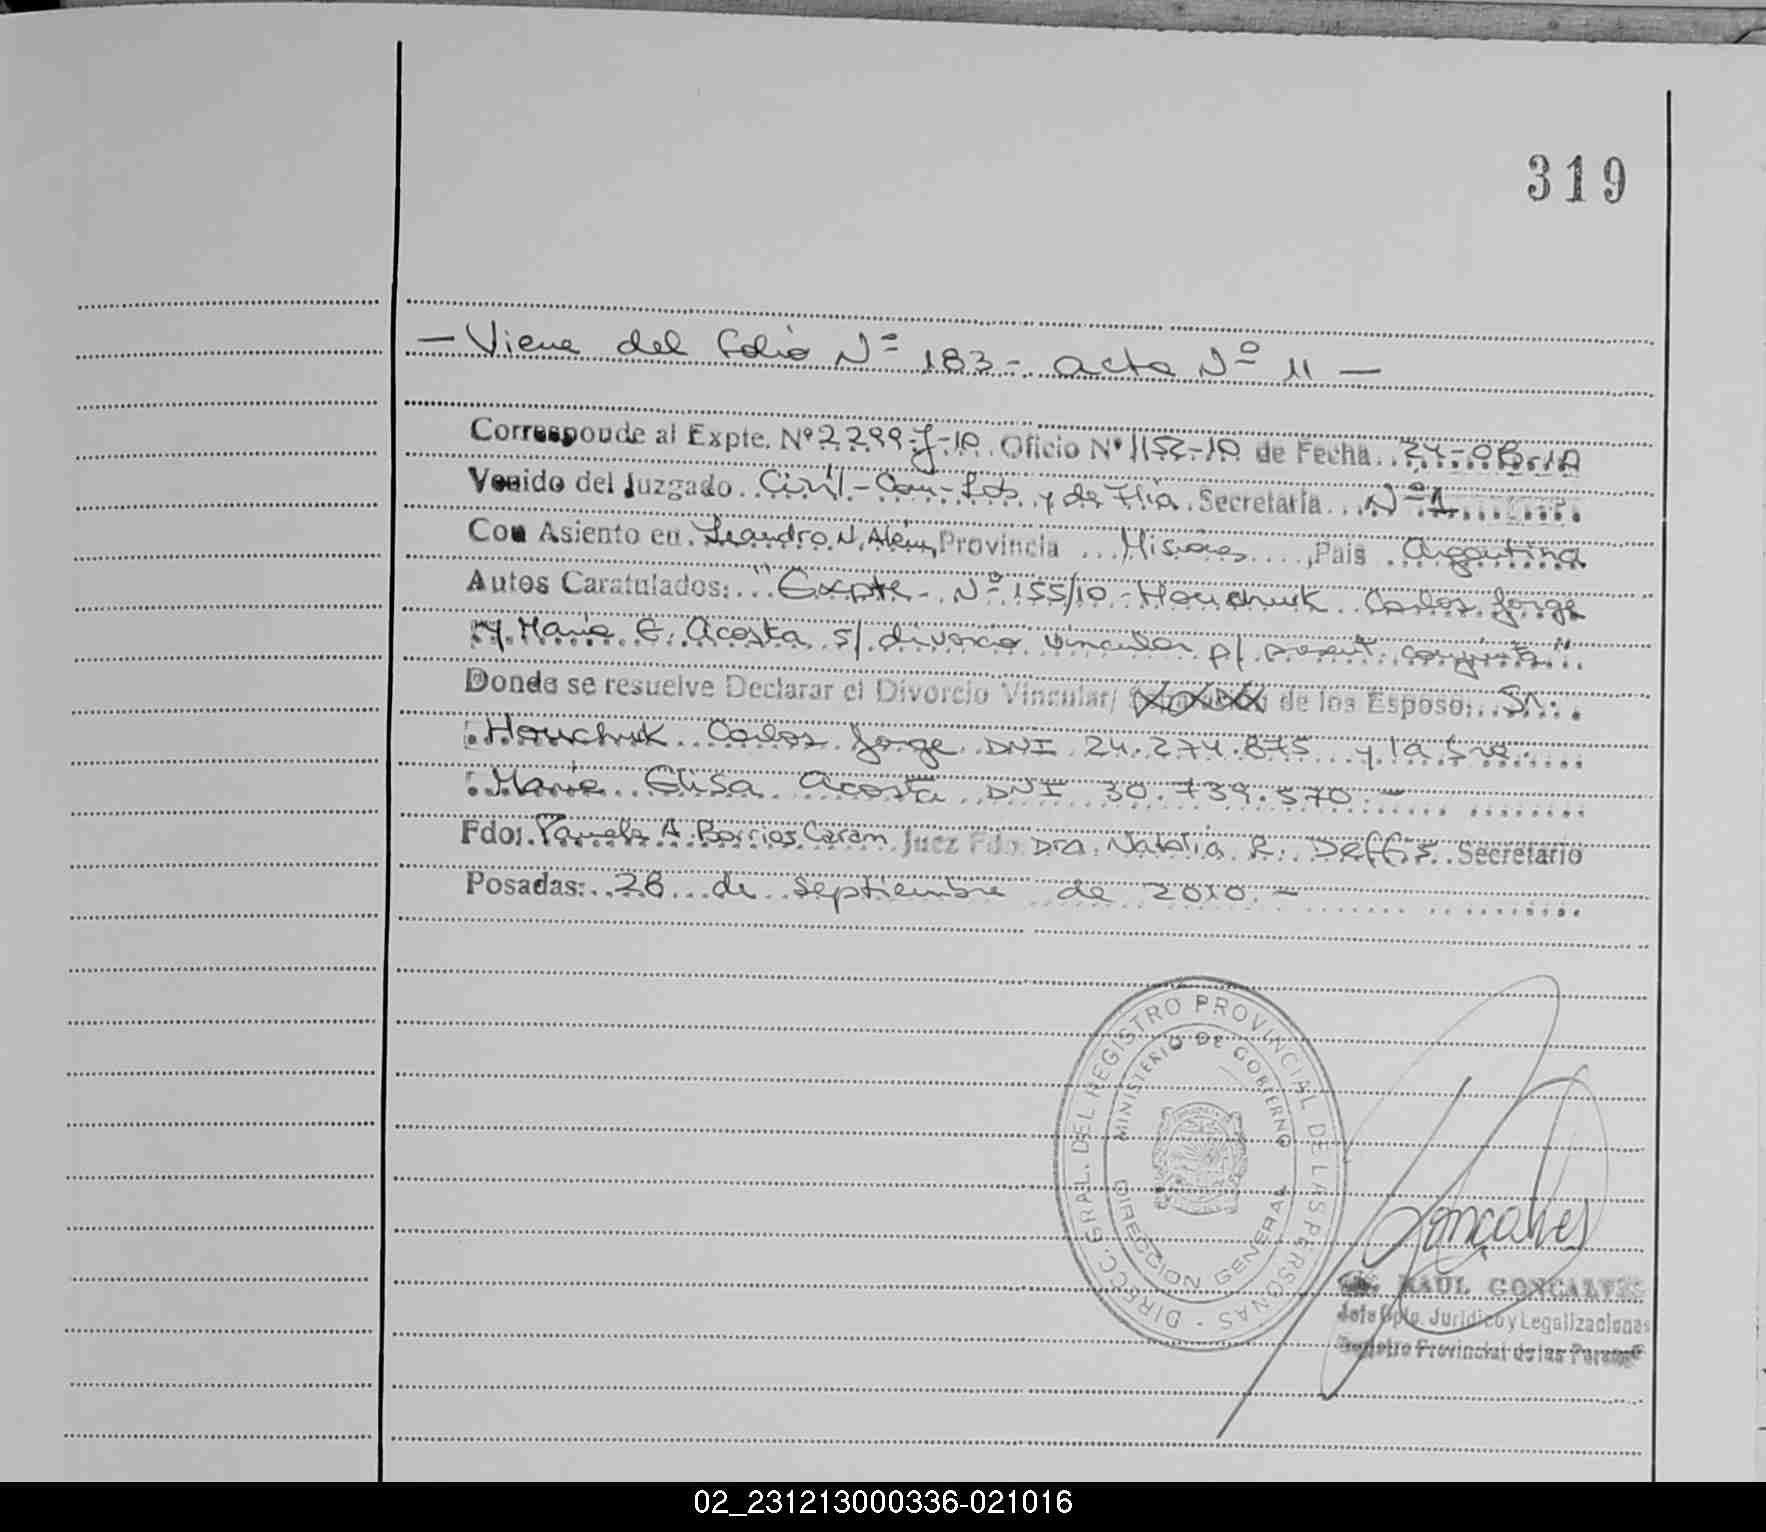 319
- Viene del folio Nº 183 - acta Nº 11 -
Corresponde al Expte. Nº 2299-J-10. Oficio Nº 1152-10 de Fecha 24-08-10
Venido del Juzgado Civil - Com - Lab y de Flia. Secretaría Nº 1
Con Asiento en Leandro N. Além, Provincia Misiones, País Argentina
Autos Caratulados: "Expte - Nº 155/10 - Houchuk Carlos Jorge
y María E. Acosta s/ divorcio vincular p/ present. conjunta"
Donde se resuelve Declarar el Divorcio Vincular/ de los Esposo: Sr.
Houchuk Carlos Jorge DNI 24.274.875 y la Sra.
María Elisa Acosta DNI 30.739.570.-
Fdo: Pamela A. Barrios Caram Juez Fdo Dra. Natalia R. Deffis Secretario
Posadas: 28 de septiembre de 2010.-
DIRECC. GRAL. DEL REGISTRO PROVINCIAL DE LAS PERSONAS -
MINISTERIO DE GOBIERNO
DIRECCION GENERAL
Goncalves
RAUL GONCALVES
Jefe Dpto. Jurídico y Legalizaciones
Registro Provincial de las Personas
02_231213000336-021016